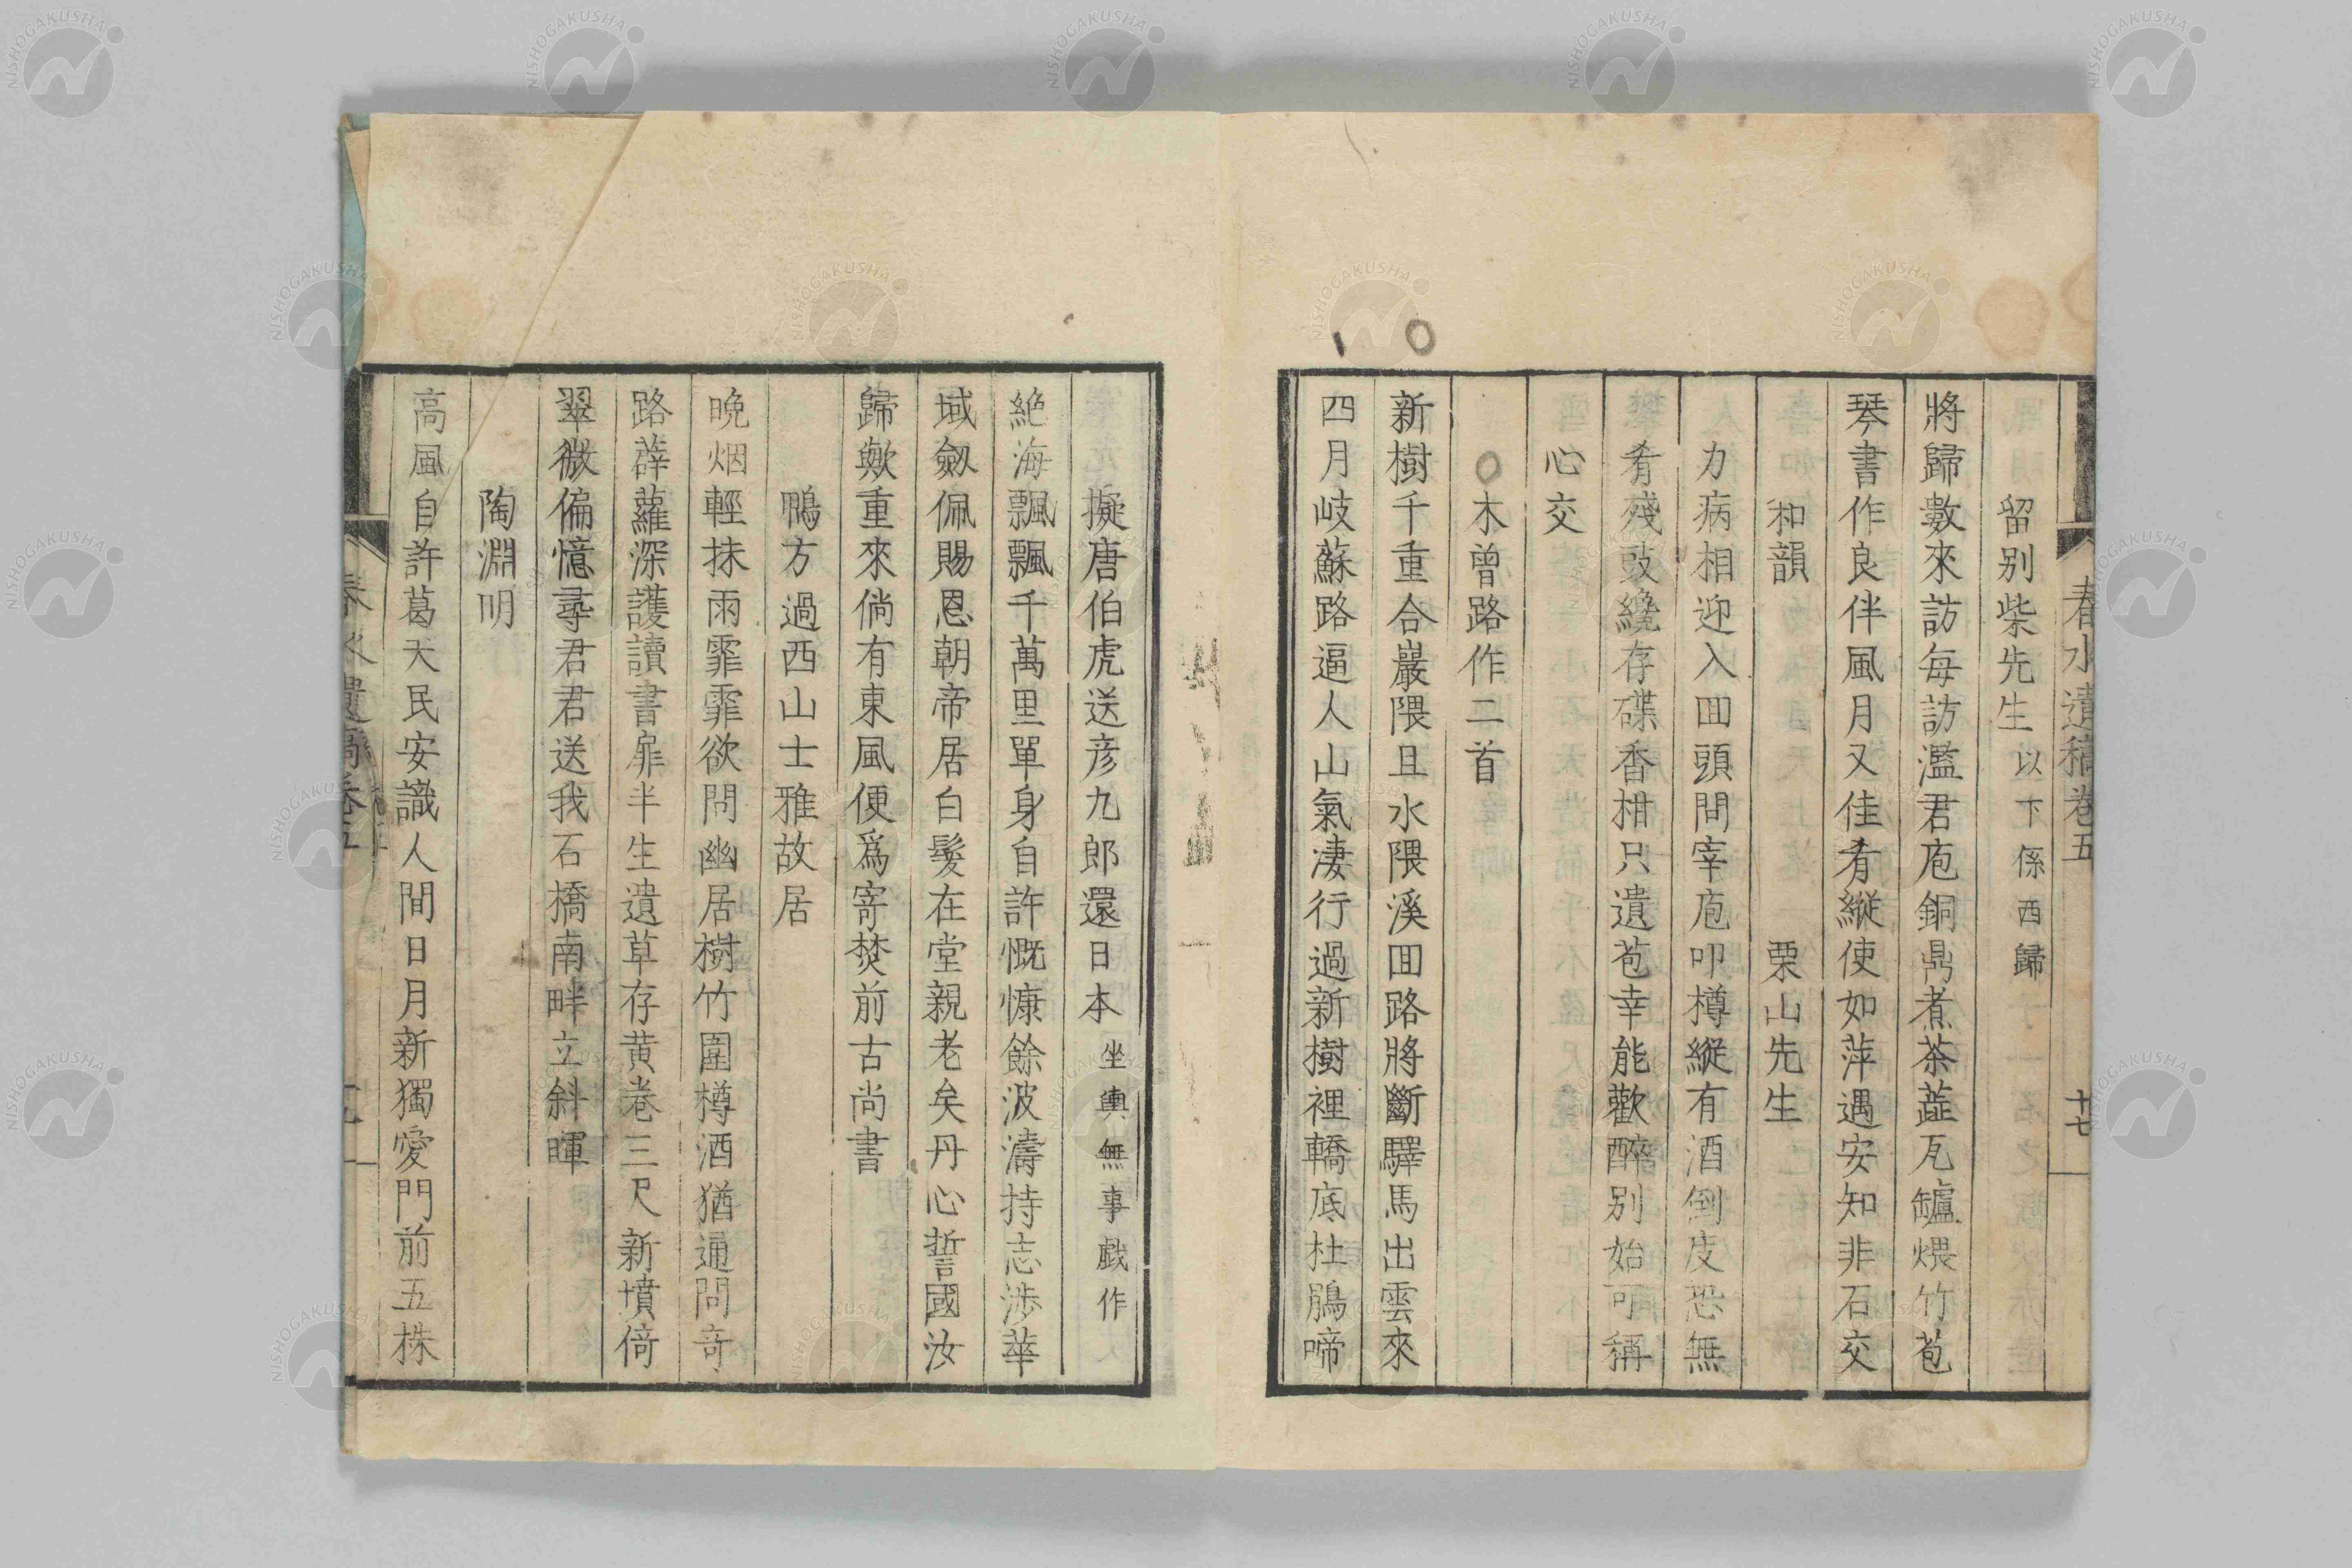 春水遺稿卷五
十七
留别柴先生以下係西歸
將歸數來訪每訪濫君庖銅鼎煮茶葅瓦罏煨竹苞
琴書作良伴風月又佳肴縱使如萍遇安知非石交
和韻 栗山先生
力病相迎入囬頭問宰庖叩樽縱有酒倒皮恐無
肴殘豉纔存碟香柑只遺苞幸能歡醉别始可稱
心交
木曾路作二首
新樹千重合巖隈且水隈溪囬路將斷驛馬出雲來
四月岐蘇路逼人山氣淒行過新樹裡轎底杜鵑啼
擬唐伯虎送彦九郎還日本坐輿無事戯作
絶海飄飄千萬里單身自許慨慷餘波濤持志渉華
域劔佩賜恩朝帝居白髮在堂親老矣丹心誓國汝
歸歟重來倘有東風便爲寄焚前古尚書
鴨方過西山士雅故居
晩烟輕抹雨霏霏欲問幽居樹竹圍樽酒猶通問奇
路薜蘿深護讀書扉半生遺草存黄卷三尺新墳倚
翠微偏憶尋君君送我石橋南畔立斜暉
陶淵明
高風自許葛天民安識人間日月新獨愛門前五株
春水遺稿卷五
NISHOGAKUSHA